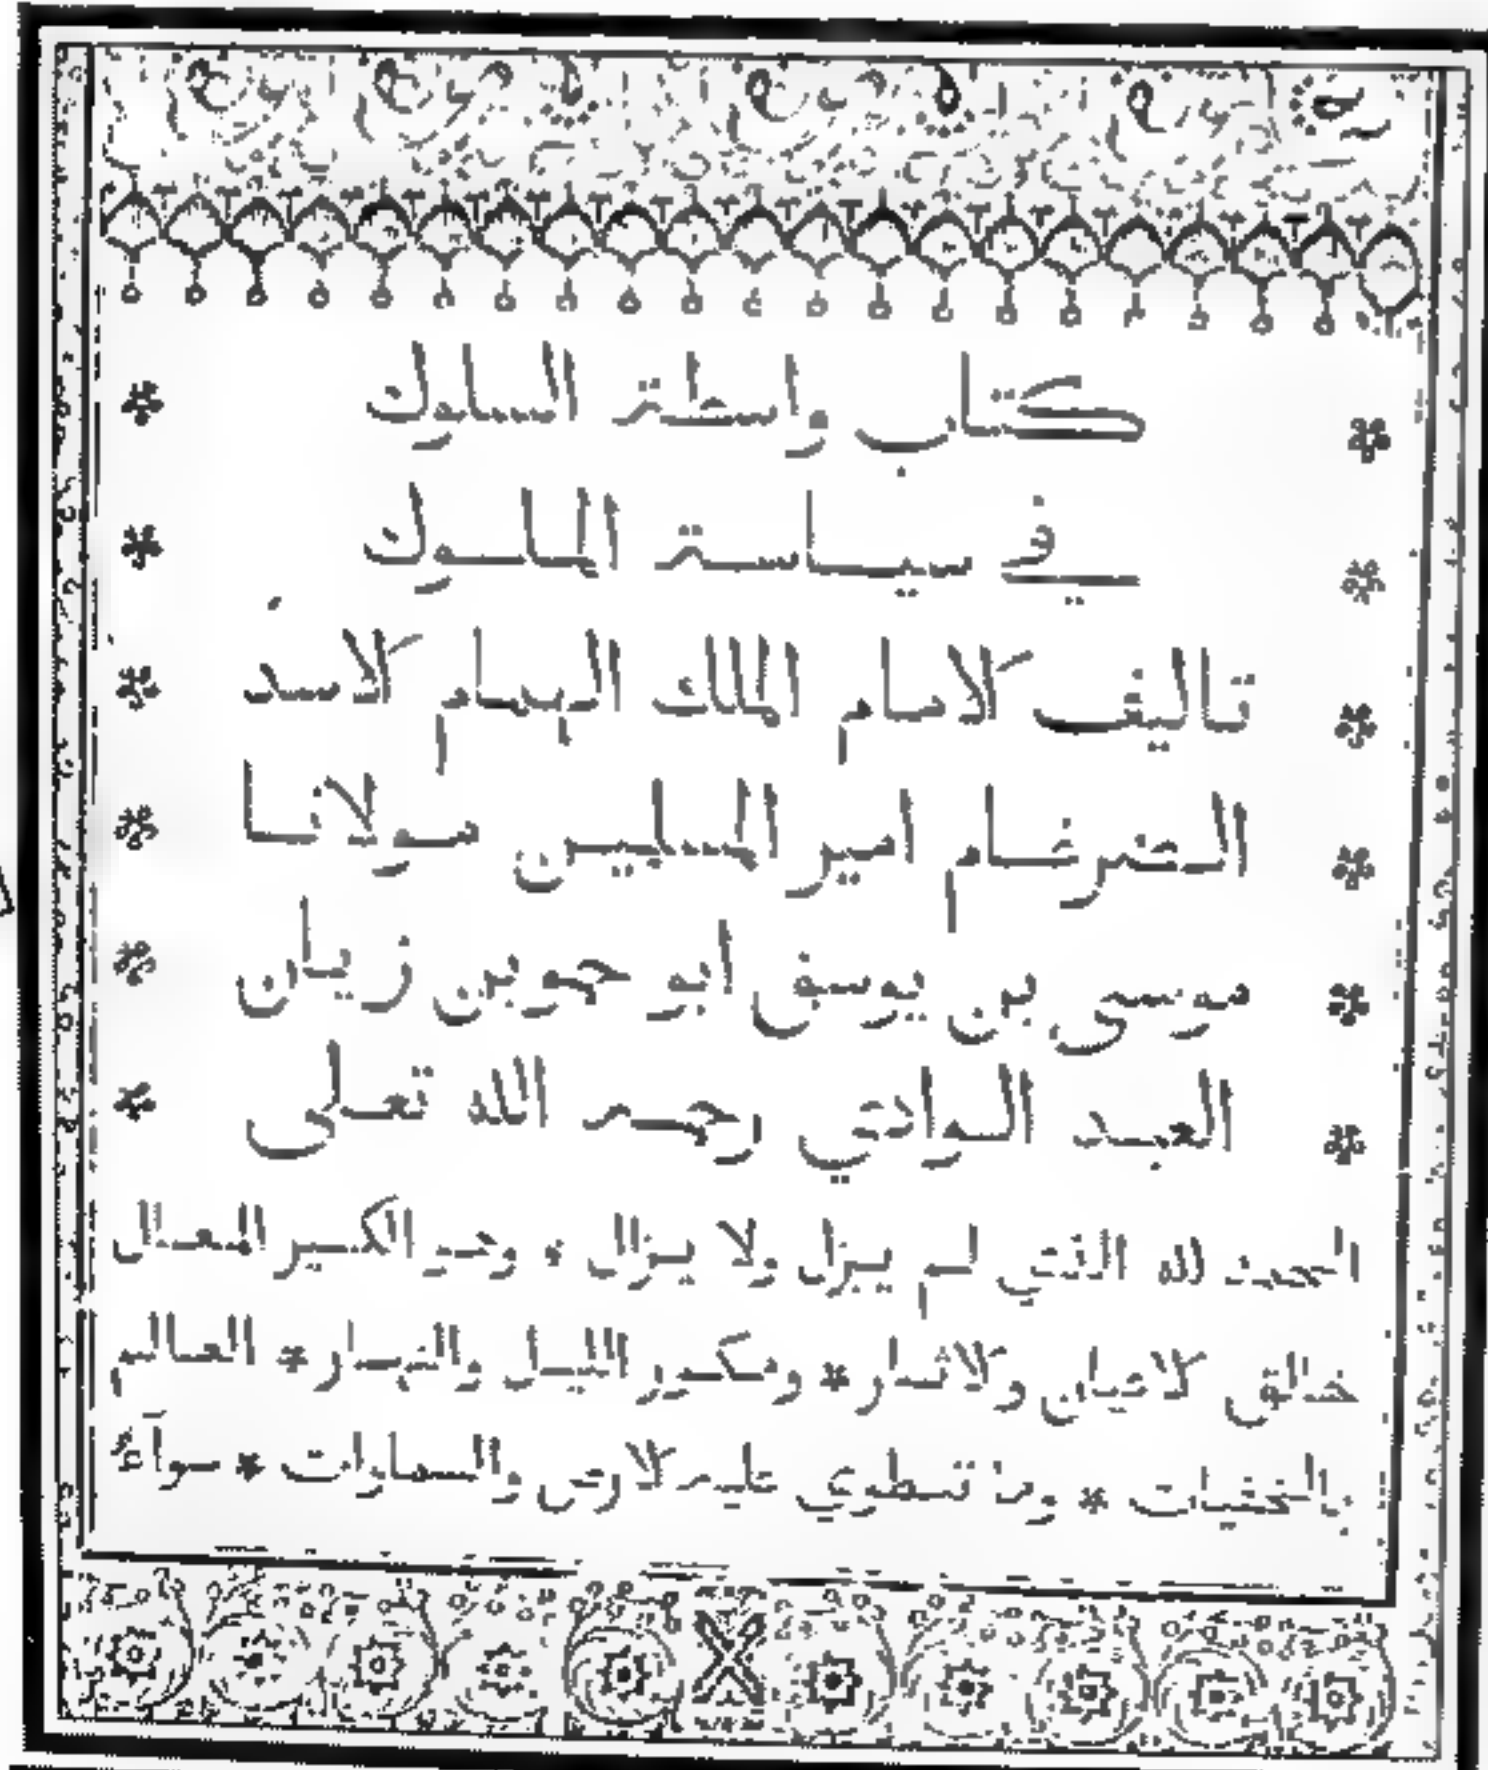 كتاب واسطة السلوك
في سياسة الملوك
تاليف الامام الملك الهمام الاسد
الضرغام امير المسلمين مولانا
موسى بن يوسف ابو حمو بن زيان
العبد الوادي رحمه الله تعلى
الحمد لله الذي لم يزل ولا يزال * وهو الكبير المتعال
خالق الاعيان والاثار * ومكور الليل والنهار * العالم
بالخفيات * وما تنطوي عليه الارض والسماوات * سوآء